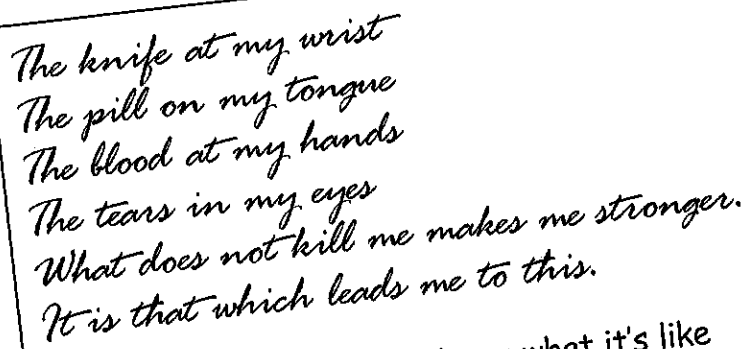 The knife at my wrist
The pill on my tongue
The blood at my hands
The tears in my eyes
What does not kill me makes me stronger.
It is that which leads me to this.
what it's like